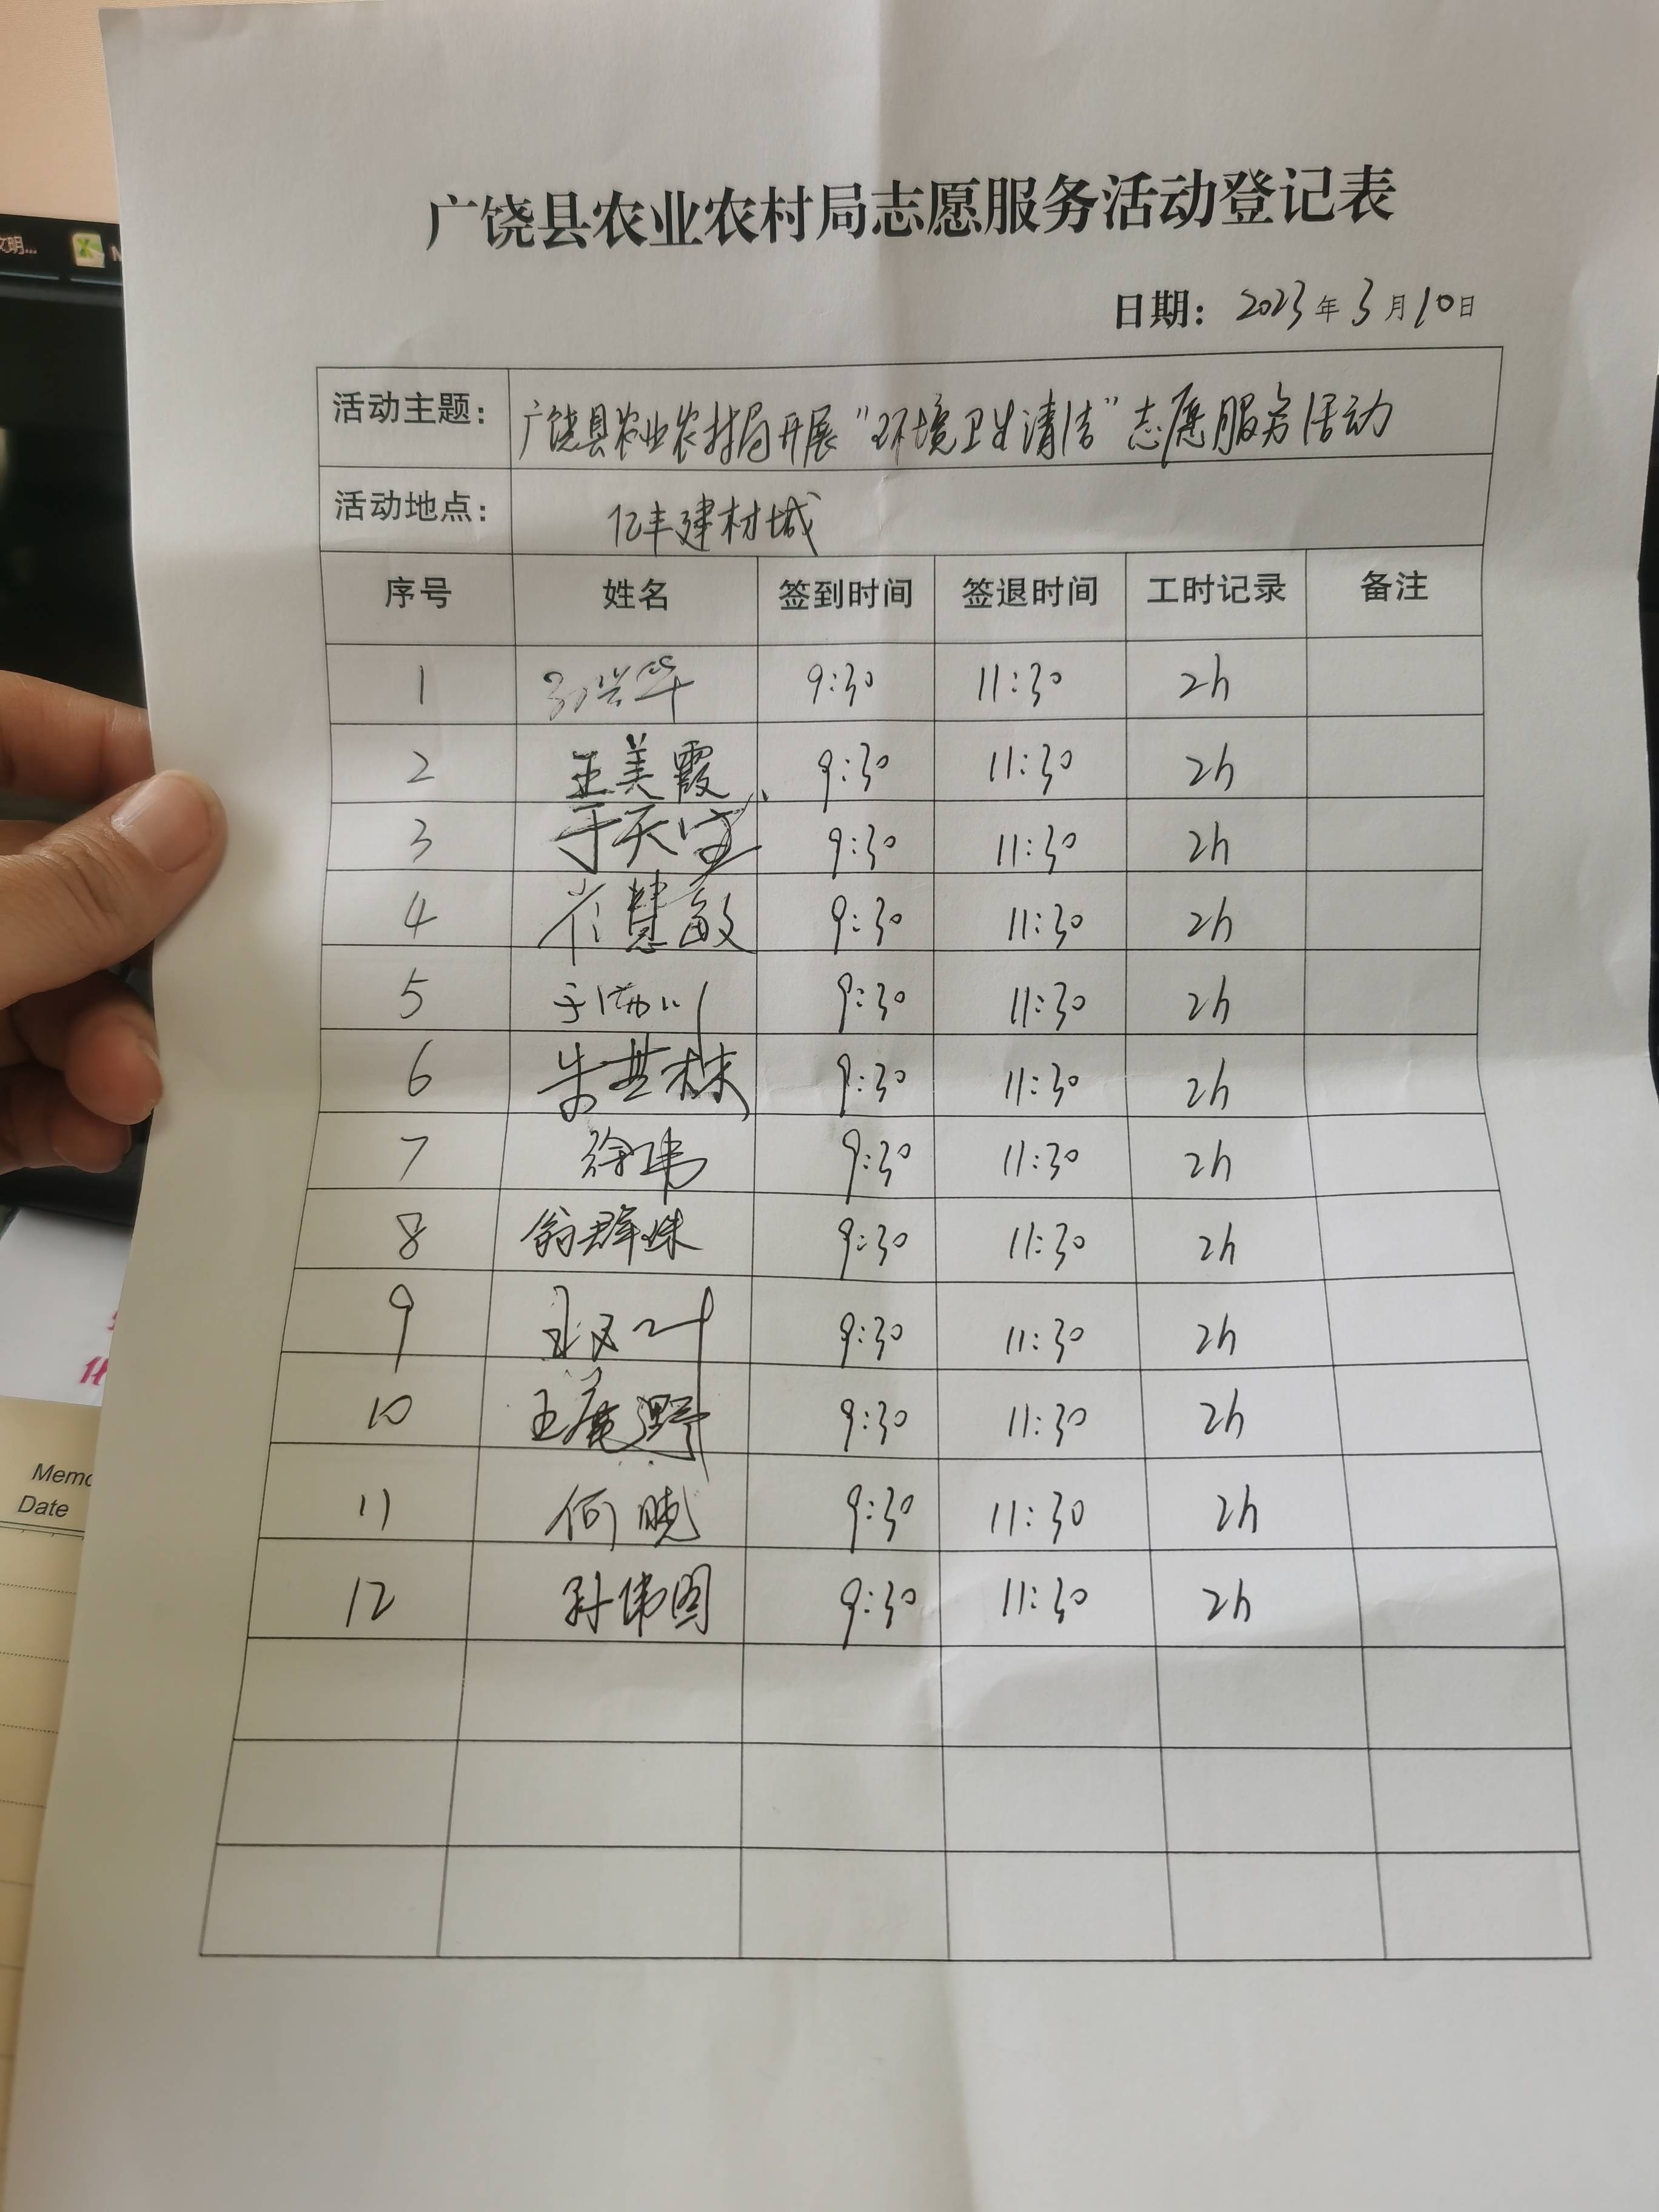 广饶县农业农村局志愿服务活动登记表
日期: 2023年3月10日
活动主题: 广饶县农业农村局开展“环境卫生清洁”志愿服务活动
活动地点: 亿丰建材城
序号 姓名 签到时间 签退时间 工时记录 备注
1 9:30 11:30 2h
2 王美霞 9:30 11:30 2h
3 于天宝 9:30 11:30 2h
4 崔慧敏 9:30 11:30 2h
5 9:30 11:30 2h
6 9:30 11:30 2h
7 徐玮 9:30 11:30 2h
8 翁群姝 9:30 11:30 2h
9 9:30 11:30 2h
10 9:30 11:30 2h
11 何晓 9:30 11:30 2h
12 孙伟图 9:30 11:30 2h
Memo
Date